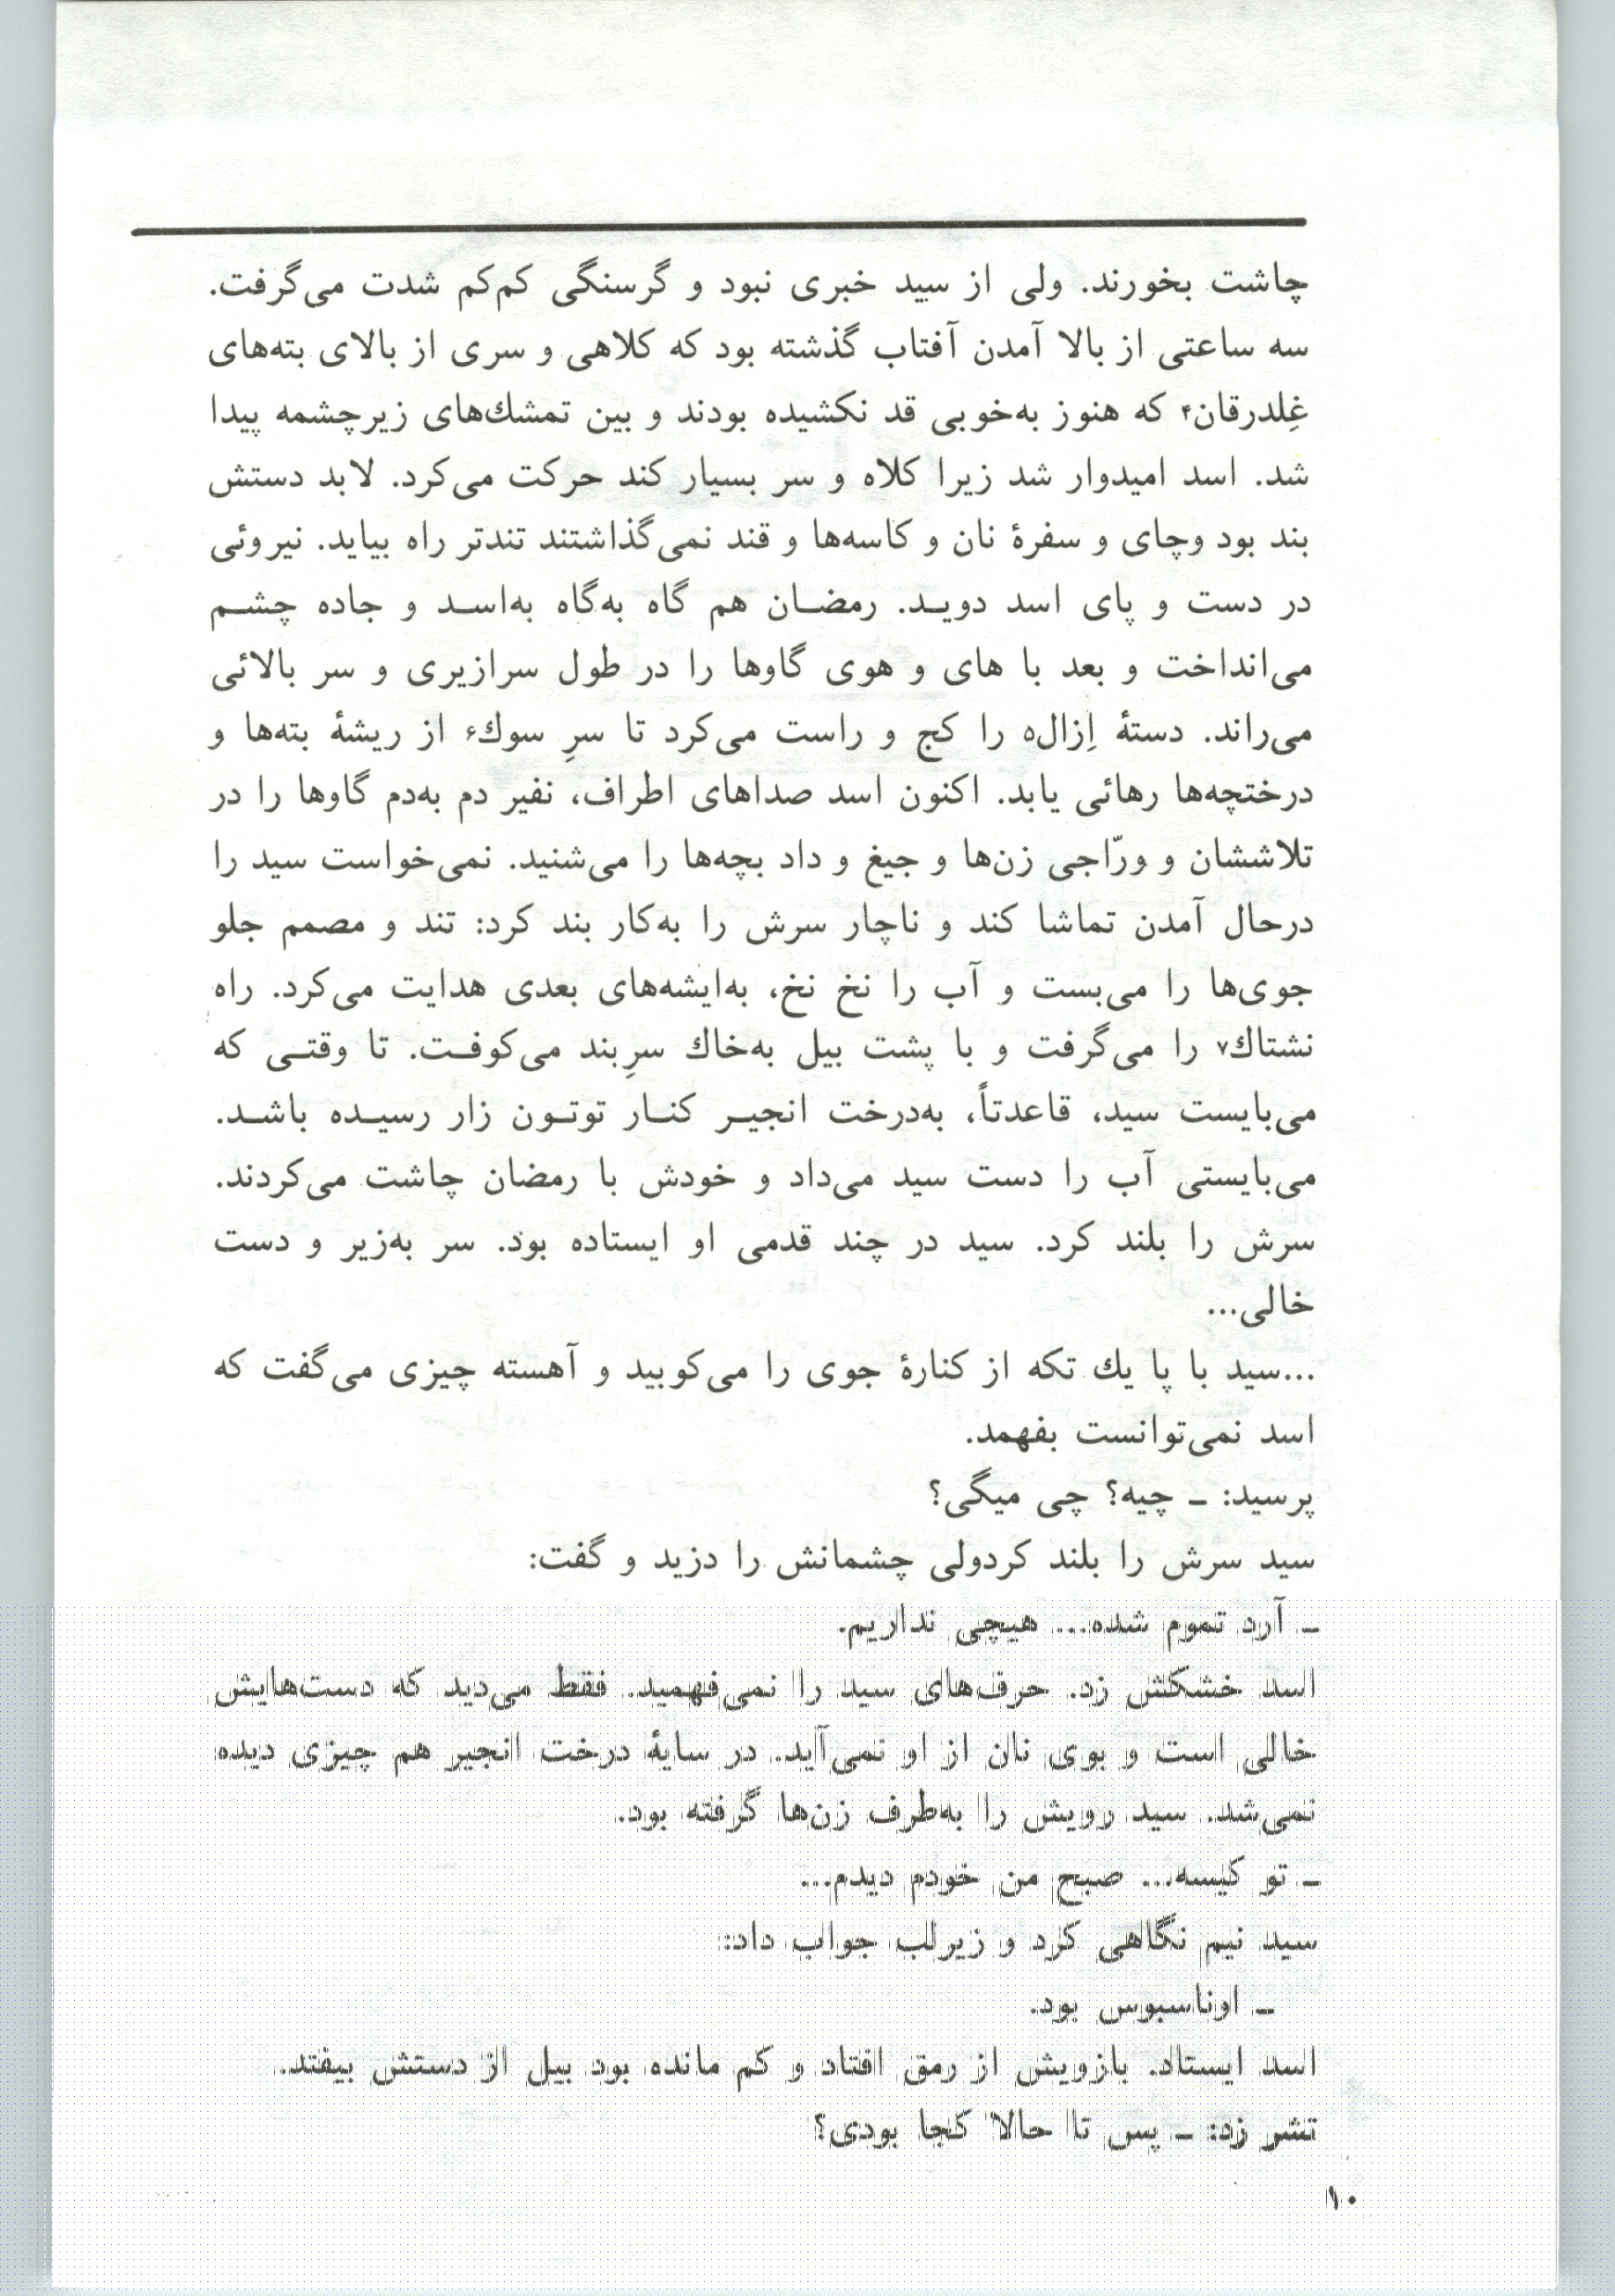 چاشت بخورند. ولی از سید خبری نبود و گرسنگی کم‌کم شدت می‌گرفت.
سه ساعتی از بالا آمدن آفتاب گذشته بود که کلاهی و سری از بالای بته‌های
غِلدرقان۴ که هنوز به‌خوبی قد نکشیده بودند و بین تمشك‌های زیرچشمه پیدا
شد. اسد امیدوار شد زیرا کلاه و سر بسیار کند حرکت می‌کرد. لابد دستش
بند بود وچای و سفرهٔ نان و کاسه‌ها و قند نمی‌گذاشتند تندتر راه بیاید. نیروئی
در دست و پای اسد دویـد. رمضـان هم گاه به‌گاه به‌اسـد و جاده چشـم
می‌انداخت و بعد با های و هوی گاوها را در طول سرازیری و سر بالائی
می‌راند. دستهٔ اِزال۵ را کج و راست می‌کرد تا سرِ سوك۶ از ریشهٔ بته‌ها و
درختچه‌ها رهائی یابد. اکنون اسد صداهای اطراف، نفیر دم به‌دم گاوها را در
تلاششان و ورّاجی زن‌ها و جیغ و داد بچه‌ها را می‌شنید. نمی‌خواست سید را
درحال آمدن تماشا کند و ناچار سرش را به‌کار بند کرد: تند و مصمم جلو
جوی‌ها را می‌بست و آب را نخ نخ، به‌ایشه‌های بعدی هدایت می‌کرد. راه
نشتاك۷ را می‌گرفت و با پشت بیل به‌خاك سرِبند می‌کوفـت. تا وقتـی که
می‌بایست سید، قاعدتاً، به‌درخت انجیـر کنـار توتـون زار رسیـده باشـد.
می‌بایستی آب را دست سید می‌داد و خودش با رمضان چاشت می‌کردند.
سرش را بلند کرد. سید در چند قدمی او ایستاده بود. سر به‌زیر و دست
خالی...
...سید با پا یك تکه از کنارهٔ جوی را می‌کوبید و آهسته چیزی می‌گفت که
اسد نمی‌توانست بفهمد.
پرسید: ـ چیه؟ چی میگی؟
سید سرش را بلند کردولی چشمانش را دزید و گفت:
ـ آرد تموم شده... هیچی نداریم.
اسد خشکش زد. حرف‌های سید را نمی‌فهمید. فقط می‌دید که دست‌هایش
خالی است و بوی نان از او نمی‌آید. در سایهٔ درخت انجیر هم چیزی دیده
نمی‌شد. سید رویش را به‌طرف زن‌ها گرفته بود.
ـ تو کیسه... صبح من خودم دیدم...
سید نیم نگاهی کرد و زیرلب جواب داد:
ـ اوناسبوس بود.
اسد ایستاد. بازویش از رمق افتاد و کم مانده بود بیل از دستش بیفتد.
تشر زد: ـ پس تا حالا کجا بودی؟
۱۰